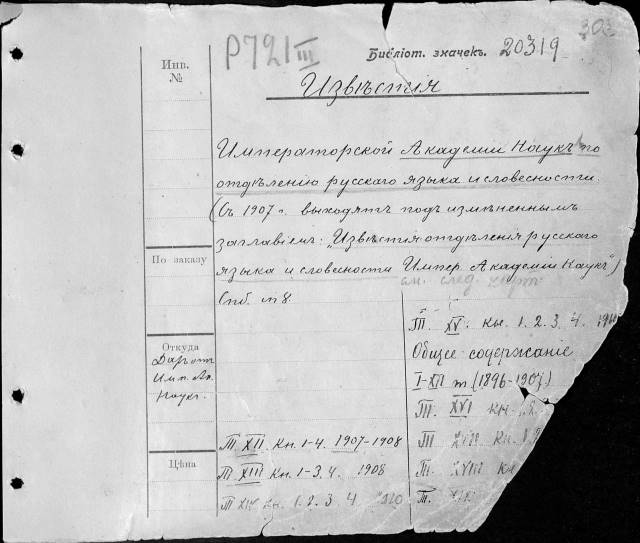 P721 III
303
Библіот. значекъ. 20319
Инв.
№
Извѣстія
Императорской Академіи Наукъ по
отдѣленію русскаго языка и словесности.
(Съ 1907 г. выходятъ подъ измѣненнымъ
заглавіемъ: „Извѣстія отдѣленія русскаго
языка и словесности Импер. Академіи Наукъ")
По заказу
см. след. карт.
Спб. т 8.
Откуда
Даръ отъ
Имп. Ак.
Наукъ.
Цѣна
Т. XII. Кн. 1-4. 1907-1908
Т. XIII кн. 1-3. 4. 1908
Т XIV кн. 1. 2. 3. 4
Т. XV. кн. 1. 2. 3. 4.
Общее содержаніе
I-XII т (1896-1907)
Т. XVI кн. 1. 2
Т XVII кн. 1. 2
Т. XVIII кн
Т. XIX